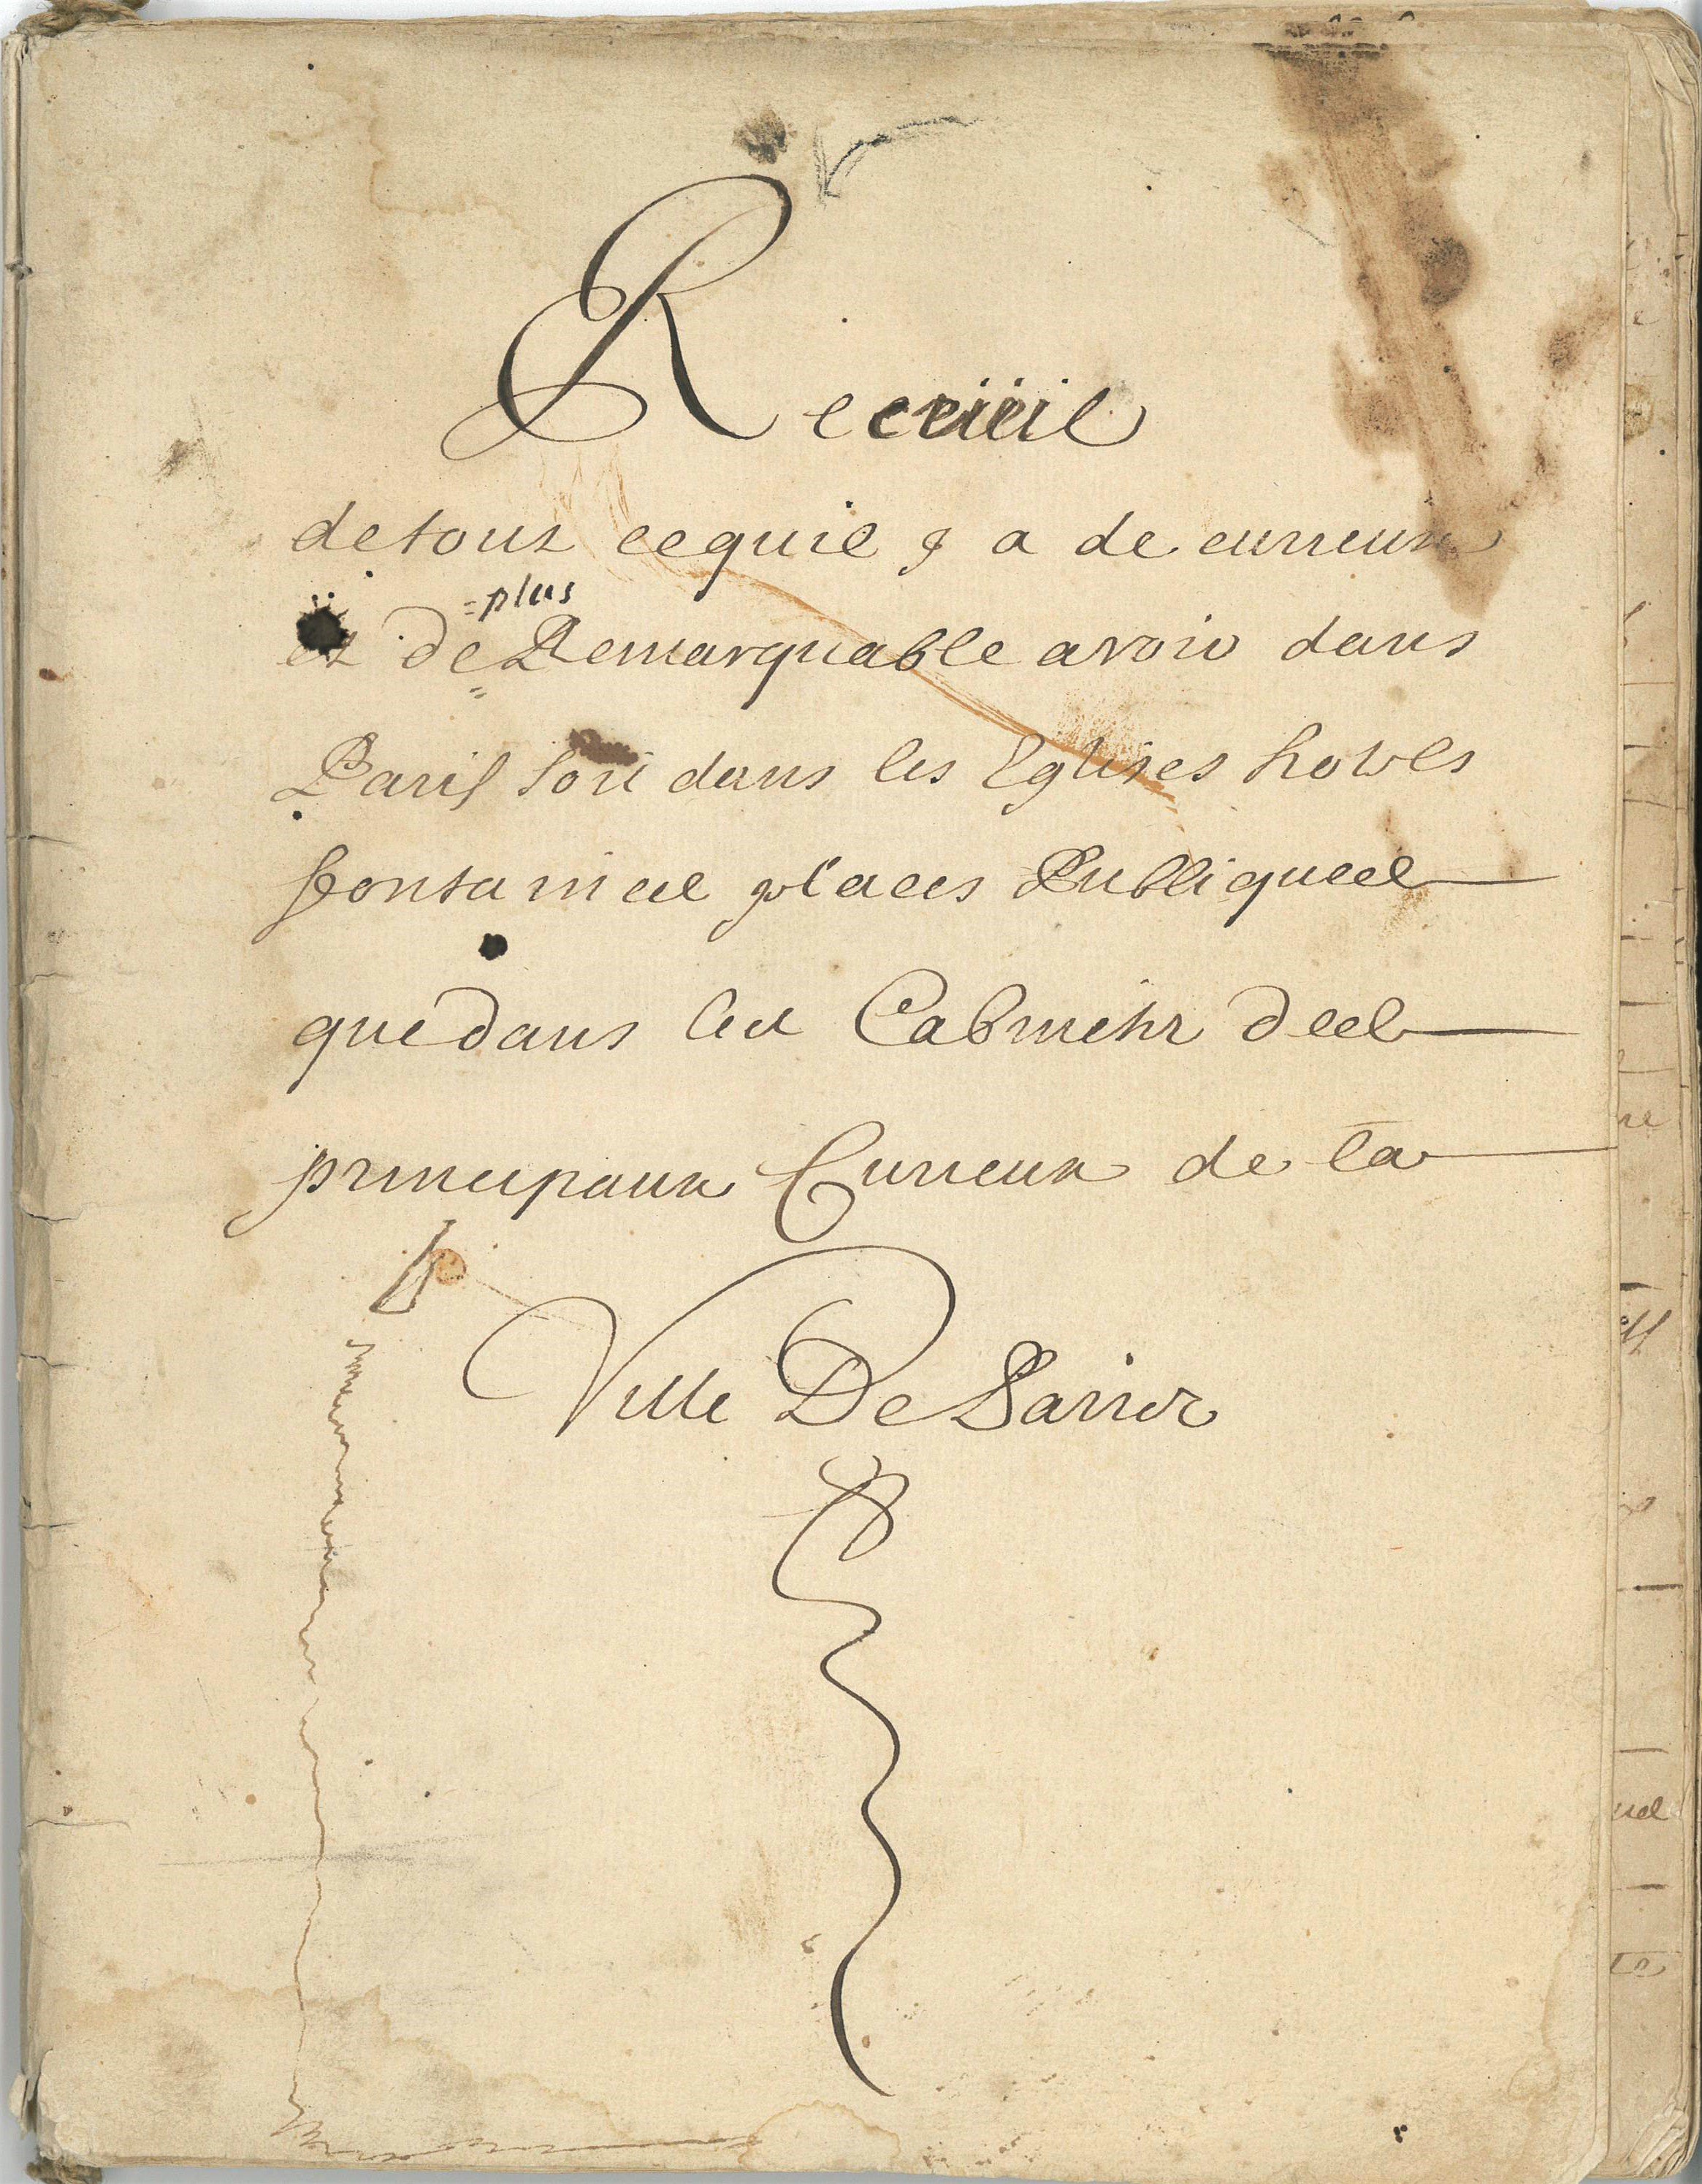 Recüeil
de tout ce quil y a de curieux
=plus
et de Remarquable avoir dans
Paris soit dans les Eglises hotels
fontaines places Publiques
que dans les Cabinets des
principaux Curieux de la
Ville De Paris